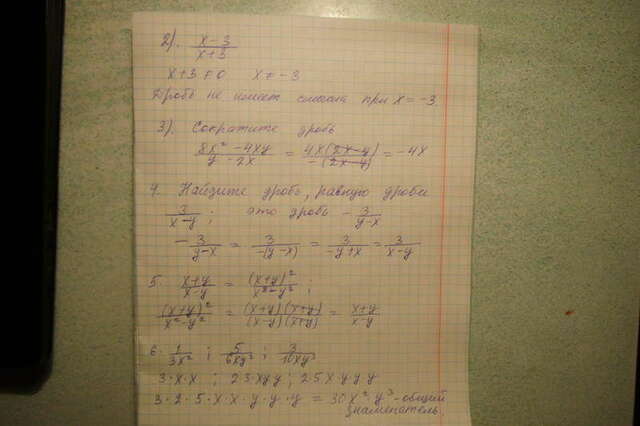 2). x-3/x+3
x+3≠0 x≠-3
Дробь не имеет смысла при x=-3.
3). Сократите дробь
8x²-4xy/y-2x = 4x(2x-y)/-(2x-y) = -4x
4. Найдите дробь, равную дроби
3/x-y; это дробь -3/y-x
-3/y-x = 3/-(y-x) = 3/-y+x = 3/x-y
5. x+y/x-y = (x+y)²/x²-y²;
(x+y)²/x²-y² = (x+y)(x+y)/(x-y)(x+y) = x+y/x-y
6. 1/3x²; 5/6xy²; 3/10xy³
3·x·x; 2·3·xyy; 2·5·x·y·y·y
3·2·5·x·x·y·y·y = 30x²·y³-общий
знаменатель.